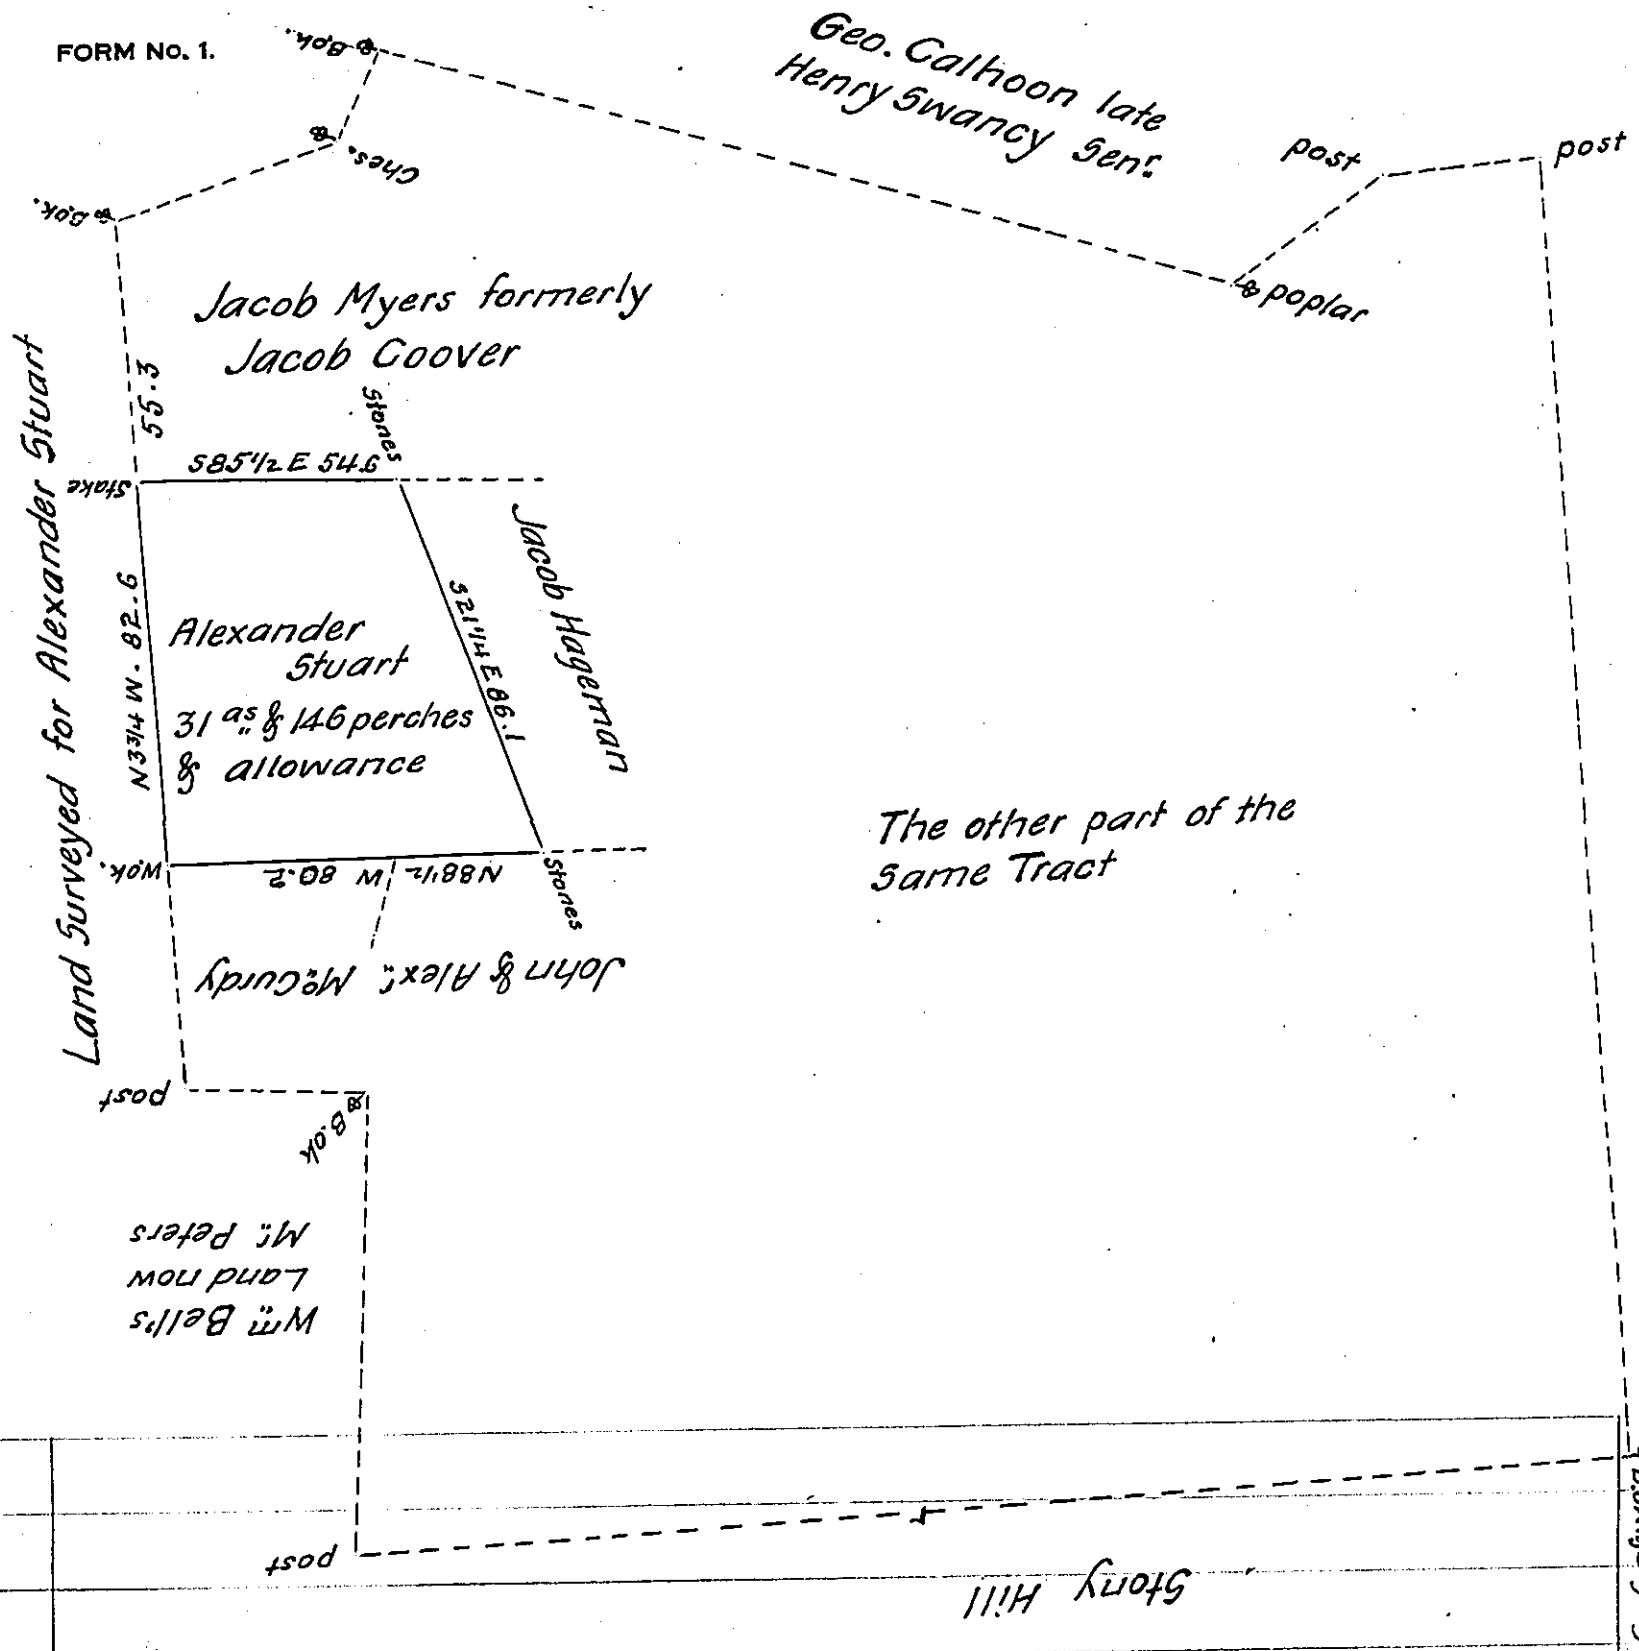 FORM No. 1.
B.ok.
Ches.
B.ok.
Geo. Calhoon late
Henry Swancy Senr.
post
post
poplar
Jacob Myers formerly
Jacob Coover
Land Surveyed for Alexander Stuart
55.3
Stones
S85 1/2 E 54.6
Stake
N3 3/4 W. 82.6
Alexander
Stuart
31 as. & 146 perches
& allowance
S21 1/4 E 86.1
Jacob Hageman
The other part of the
Same Tract
W.ok.
N88 1/2 W 80.2
Stones
John & Alexr. McCurdy
post
B.ok
Wm. Bell's
Land now
Mr. Peters
post
Stony Hill